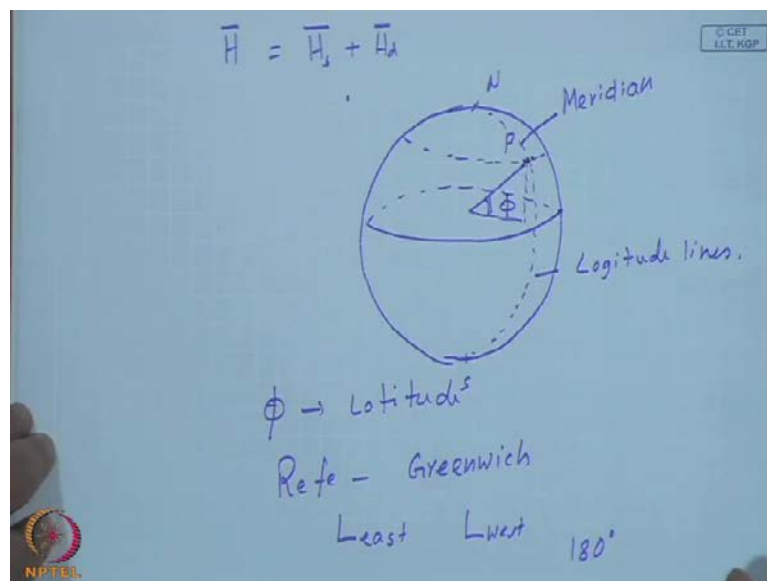 H̅ = H̅s + H̅d
© CET
I.I.T. KGP
N
Meridian
P
Φ
Logitude lines.
S
Φ → Lotitude
Refe - Greenwich
Least Lwest 180°
NPTEL